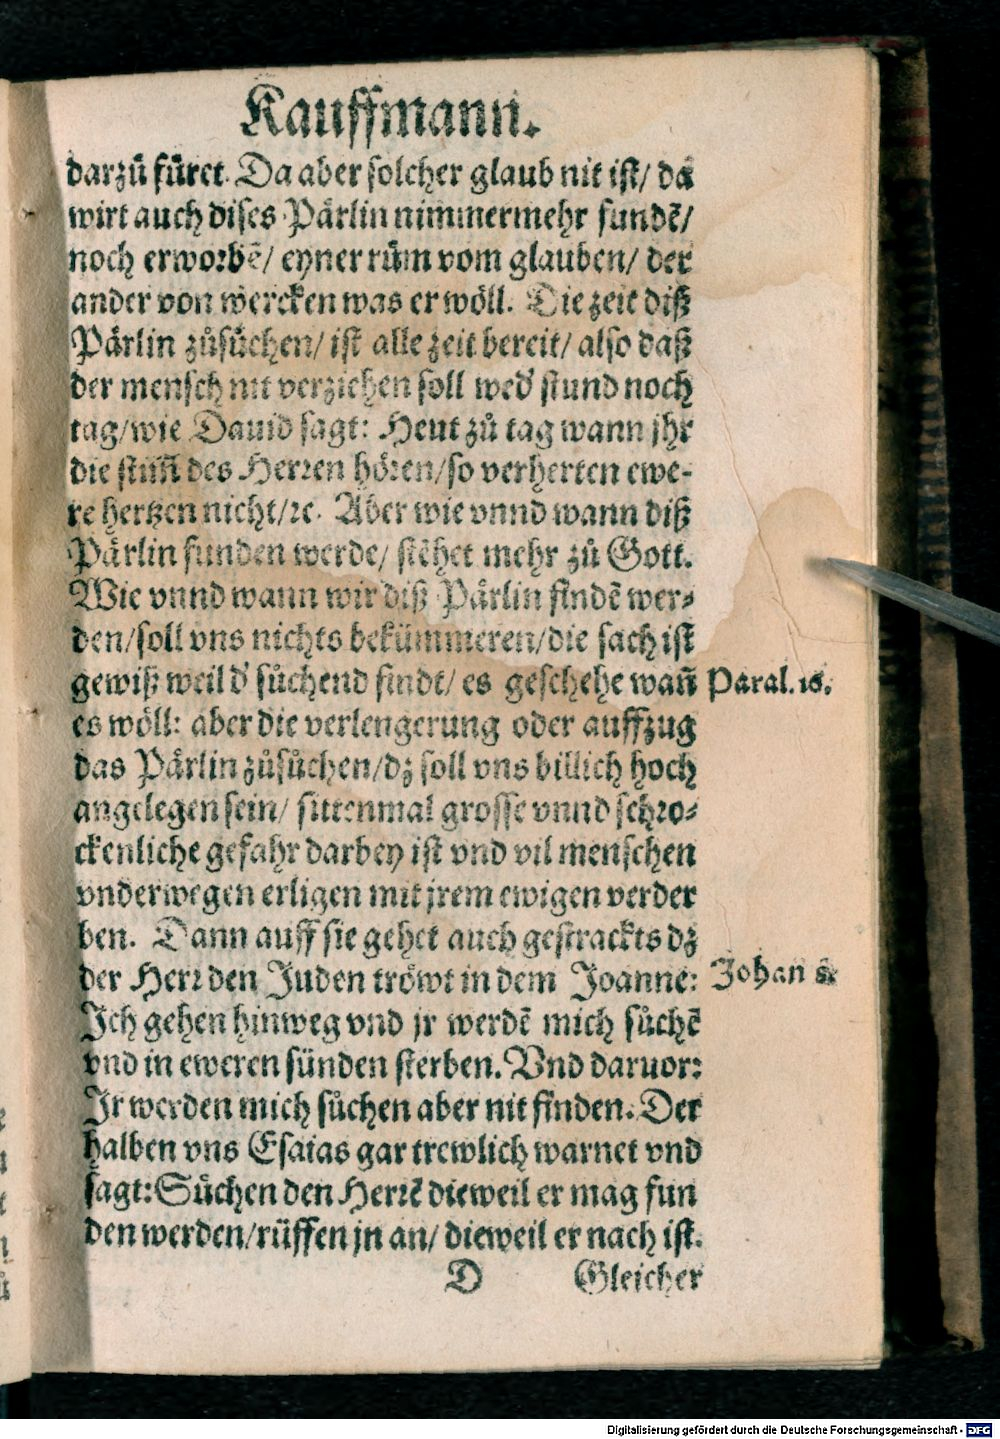 Kauffmann.
darzů fůret. Da aber solcher glaub nit ist/ da
wirt auch dises Pärlin nimmermehr fundẽ/
noch erworbẽ/ eyner rům vom glauben/ der
ander von wercken was er wöll. Die zeit diß
Pärlin zůsůchen/ ist alle zeit bereit/ also daß
der mensch nit verziehen soll wed' stund noch
tag/ wie Dauid sagt: Heut zů tag wann jhr
die stim̃ des Herren hören/ so verherten ewe-
re hertzen nicht/ ꝛc. Aber wie vnnd wann diß
Pärlin funden werde/ stehet mehr zů Gott.
Wie vnnd wann wir diß Pärlin findẽ wer-
den/ soll vns nichts bekümmeren/ die sach ist
gewiß weil d' sůchend findt/ es geschehe wañ
Paral. 15.
es wöll: aber die verlengerung oder auffzug
das Pärlin zůsůchen/ dz soll vns billich hoch
angelegen sein/ sittenmal grosse vnnd schro-
ckenliche gefahr darbey ist vnd vil menschen
vnderwegen erligen mit jrem ewigen verder
ben. Dann auff sie gehet auch gestrackts dz
der Herr den Juden tröwt in dem Joanne:
Johan 8.
Ich gehen hinweg vnd jr werdẽ mich sůchẽ
vnd in eweren sünden sterben. Vnd daruor:
Jr werden mich sůchen aber nit finden. Der
halben vns Esaias gar trewlich warnet vnd
sagt: Sůchen den Herrẽ dieweil er mag fun
den werden/ rüffen jn an/ dieweil er nach ist.
D Gleicher
Digitalisierung gefördert durch die Deutsche Forschungsgemeinschaft - DFG